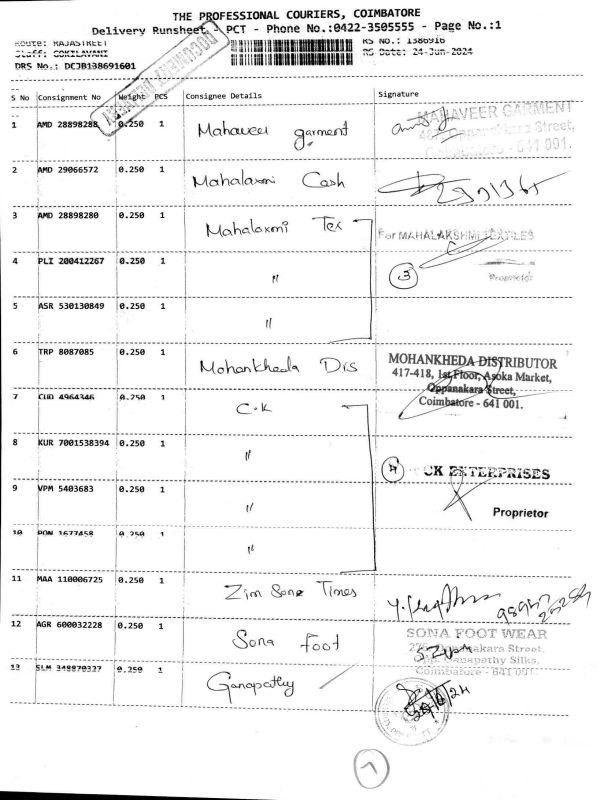 THE PROFESSIONAL COURIERS, COIMBATORE
Delivery Runsheet - PCT - Phone No.:0422-3505555 - Page No.:1
Route: RAJASTREET RS No.: 1386916
Staff: GOKILAVANI RS Date: 24-Jun-2024
DRS No.: DCJB138691601
DOCUMENT DELIVERY
S No Consignment No Weight PCS Consignee Details Signature
1 AMD 28898288 0.250 1 Mahaveer garment
MAHAVEER GARMENT
Oppanakkara Street,
Coimbatore - 641 001.
2 AMD 29066572 0.250 1 Mahalaxmi Cash
3 AMD 28898280 0.250 1 Mahalaxmi Tex
For MAHALAKSHMI TEXTILES
4 PLI 200412267 0.250 1 "
3
Proprietor
5 ASR 530130849 0.250 1 "
6 TRP 8087085 0.250 1 Mohankheda Dis
MOHANKHEDA DISTRIBUTOR
417-418, 1st Floor, Asoka Market,
Oppanakara Street,
Coimbatore - 641 001.
7 CUD 4964346 0.250 1 C.K
8 KUR 7001538394 0.250 1 "
4
CK ENTERPRISES
9 VPM 5403683 0.250 1 "
Proprietor
10 PON 1677458 0.250 1 "
11 MAA 110006725 0.250 1 Zim Sona Times
12 AGR 600032228 0.250 1 Sona foot
SONA FOOT WEAR
Street,
Opp. Ganapathy Silks,
Coimbatore - 641 001.
13 SLM 348870327 0.250 1 Ganapathy